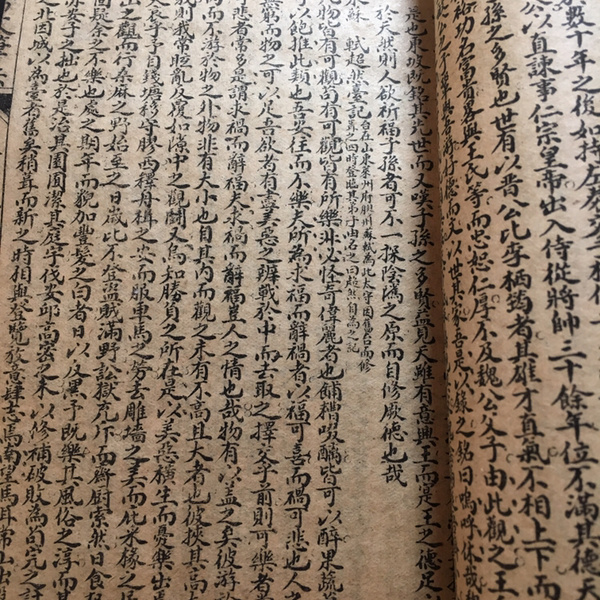 數十年之後如持左券交手相付
公以直諫事仁宗皇帝出入侍從將帥三十餘年位不滿其德天
孫之多賢也世有以晉公比李栖筠者其雄才直氣不相上下而
功名富貴畧與王氏等而忠恕仁厚不及魏公父子由此觀之王
文以世其家吾是以錄之銘曰嗚呼休哉
是也東坡既銘其先世而又嘆子孫之多賢益見天雖有意興王而是王之德足
於天然則人欲祈福子孫者可不一探陰隲之原而自修厥德也哉
蘇軾超然臺記
物皆有可觀苟有可觀皆有所樂非必怪奇偉麗者也餔糟啜醨皆可以醉果蔬
可以飽推此類也吾安往而不樂夫所為求福而辭禍者以福可喜而禍可悲也人之
窮而物之可以足吾欲者有盡美惡之辨戰於中而去取之擇交乎前則可樂者
悲者常多是謂求禍而辭福夫求禍而辭福豈人之情也哉物有以盖之矣彼游於
而不游於物之外物非有大小也自其內而觀之未有不高且大者也彼挾其高
則我常眩亂反覆如隙中之觀鬬又烏知勝負之所在是以美惡橫生而憂樂出焉
哀乎予自錢塘移守膠西釋舟楫之安而服車馬之勞去雕墻之美而庇采椽之居
之觀而行桑麻之野始至之日歲比不登盜賊滿野訟獄充斥而齋厨索然日食杞
固疑余之不樂也處之期年而貌加豐髮之白者日以反黑予既樂其風俗之淳而其
安予之拙也於是治其園囿潔其庭宇伐安邱高密之木以修補破敗為苟完之計
之北因城以為臺者舊矣稍葺而新之時相與登覽放意肆志焉南望馬耳常山出